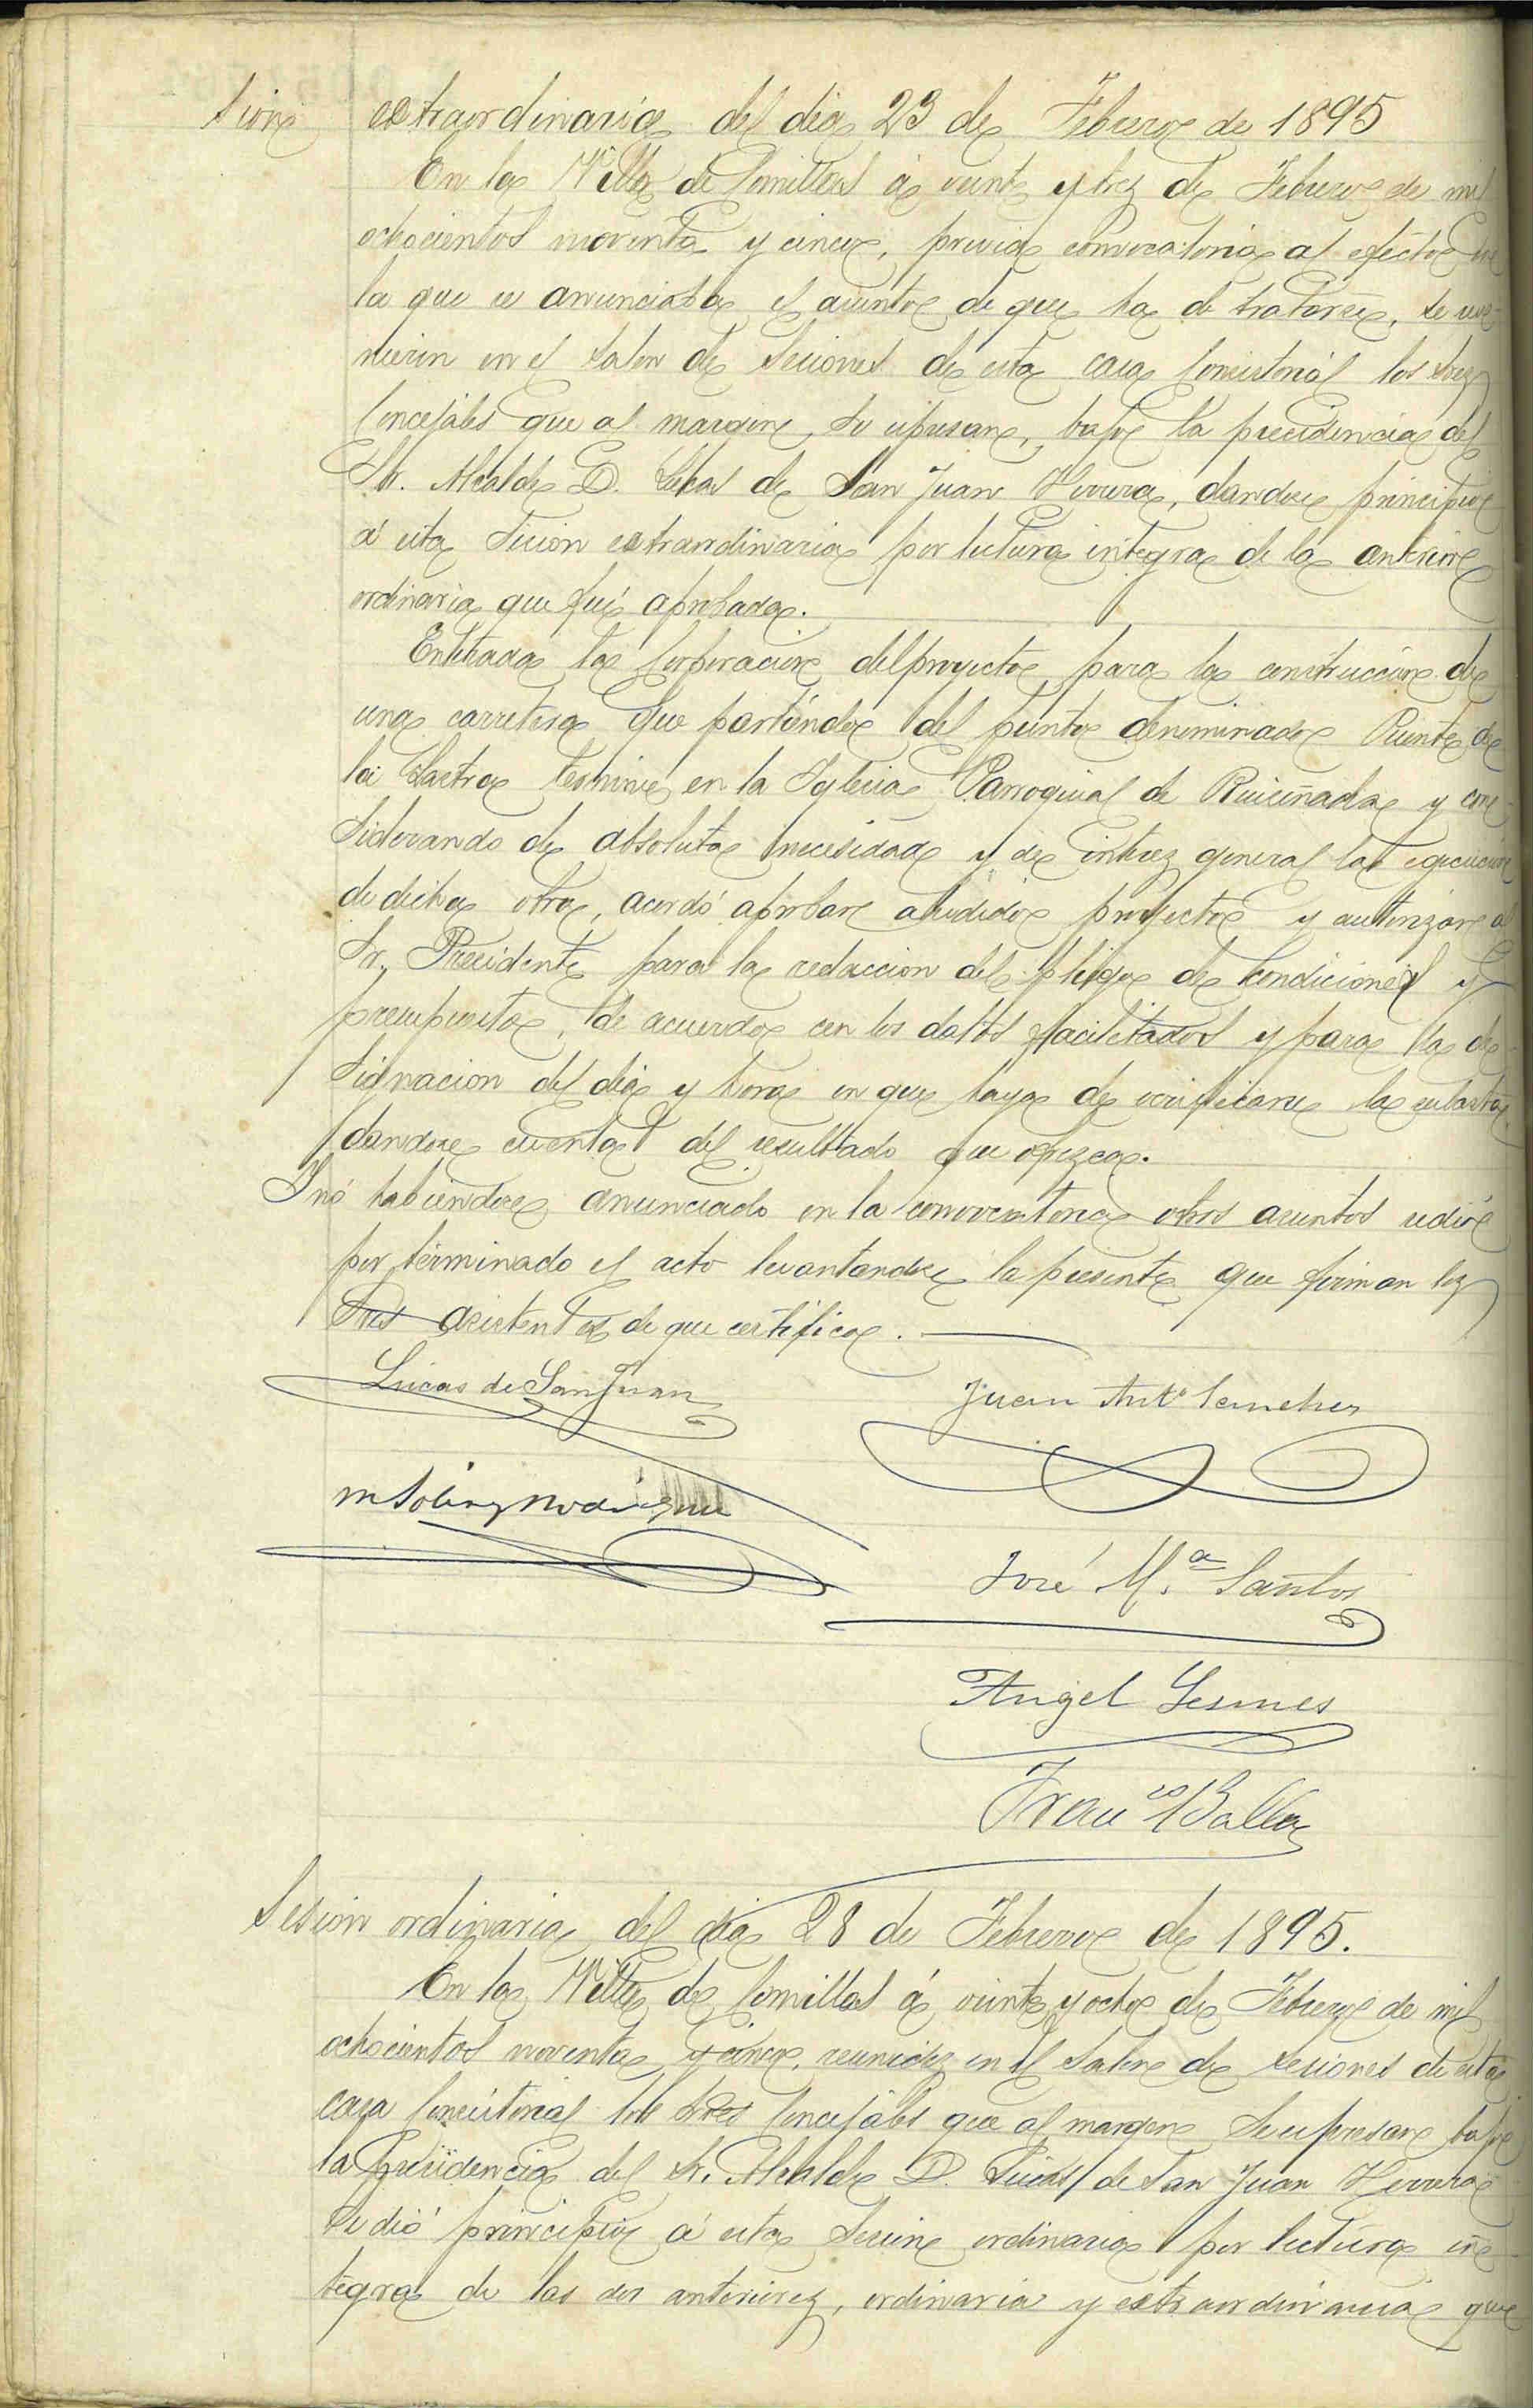 Sion extraordinaria del dia 23 de Febrero de 1895
En la Villa de Comillas á veinte y trez de Febrero de mil
ochocientos noventa y cinco, previa convocatoria al efecto en
la que se anunciaba el asunto de que ha de tratarse, se reu-
nieron en el salon de Sesiones de esta casa Consistorial los Srez
Concejales que al margen se espresan, bajo la presidencia del
Sr. Alcalde D. Lucas de San Juan Herrera, dandose principio
á esta Sesion extraordinaria por lectura integra de la anterior
ordinaria que fué aprobada.
Enterada la Corporacion del proyecto para la construccion de
una carretera que partiendo del punto denominado Puente de
la Lastra termine en la Iglesia Parroquial de Ruiseñada y con-
siderando de absoluta necesidad y de interez general la egecucion
de dicha obra, acordó aprobar aludido proyecto y autorizar al
Sr. Presidente para la redaccion del pliego de condiciones y
presupuesto, de acuerdo con los datos facilitados y para la de-
signacion del dia y hora en que haya de verificarse la subasta,
dandose cuenta del resultado que ofrezca.
Y no habiendose anunciado en la convocatoria otros asuntos se dió
por terminado el acto levantandose la presente que firman los
Sres asistentes de que certifico.
Lucas de San Juan
Juan Antº Sanchez
M Rodriguez
José M.ª Santos
Angel
Franco
Sesion ordinaria del dia 28 de Febrero de 1895.
En la Villa de Comillas á veinte y ocho de Febrero de mil
ochocientos noventa y cinco, reunidoz en el salon de sesiones de esta
casa Consistorial los Sres Concejales que al margen se espresan bajo
la Presidencia del Sr. Alcalde D. Lucas de San Juan Herrera
se dió principio á esta Sesion ordinaria por lectura in-
tegra de las dos anteriorez, ordinaria y extraordinaria que